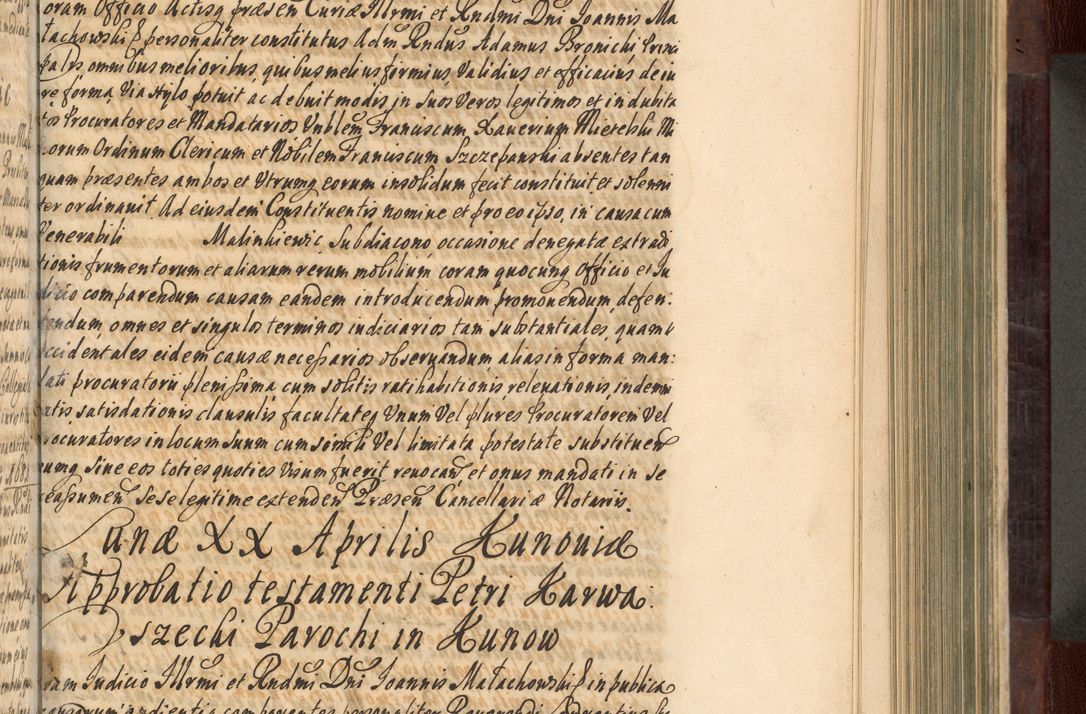 oram Officio Actisq præsen Curiæ Illrmi et Rndmi Dni Joannis Ma
tachowski personaliter constitutus Adm Rndus Adamus Bronicki Princi
palis omnibus melioribus, quibus melius firmius, validius et efficacius de iu
re forma, via stylo potuit ac debuit modis, in suos veros legitimos et indubita
tos Procuratores et Mandatarios Vnblem Franciscum Xauerium Mietelski Mi
norum Ordinum Clericum et Nobilem Franciscum Szczepanski absentes tan
quam præsentes ambos et Vtrumq eorum insolidum fecit constituit et solenni
ter ordinauit Ad eiusdem Constituentis nomine et pro eo ipso, in causa cum
Venerabili Malinkiewic Subdiacono occasione denegatæ extradi
tionis frumentorum et aliarum rerum mobilium coram quocunq Officio et Ju
dicio comparendum causam eandem introducendum promouendum, defen:
tendum omnes et singulos terminos iudiciarios tam substantiales, quam
accidentales eidem causæ necessarios obseruandum, alias in forma man:
dati procuratorii plenissima cum solitis ratihabitionis, releuationis, indemni
atis satisdationis clausulis facultateq Vnum Vel plures Procuratorem Vel
Procuratores in locum suum cum simili Vel limitata potestate substituen
eumq siue eos toties quoties Visum fuerit reuocan et onus mandati in se
reassumen Sese legitime extenden Præsen Cancellariæ Notarius.
Lunæ XX Aprilis Kunouiæ
Approbatio testamenti Petri Karwa:
szecki Parochi in Kunow
oram Judicio Illrmi et Rndmi Dni Joannis Małachowski in publica